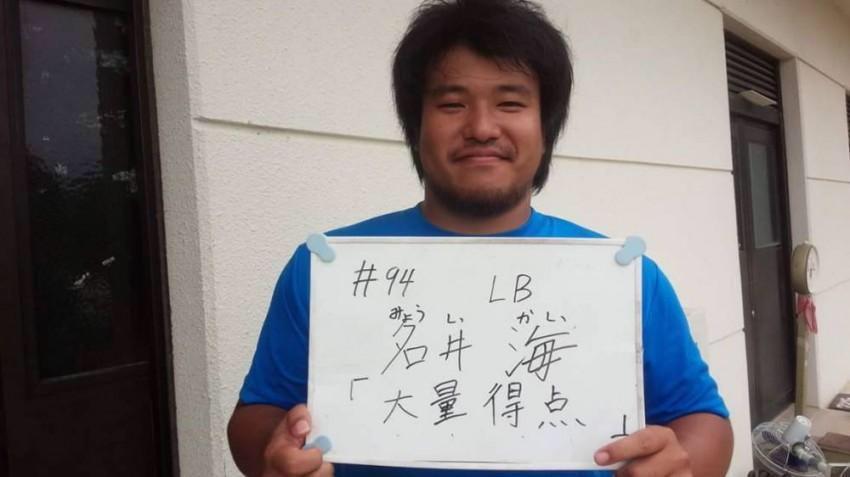 #94 LB
みょうい かい
名井 海
「大量得点」